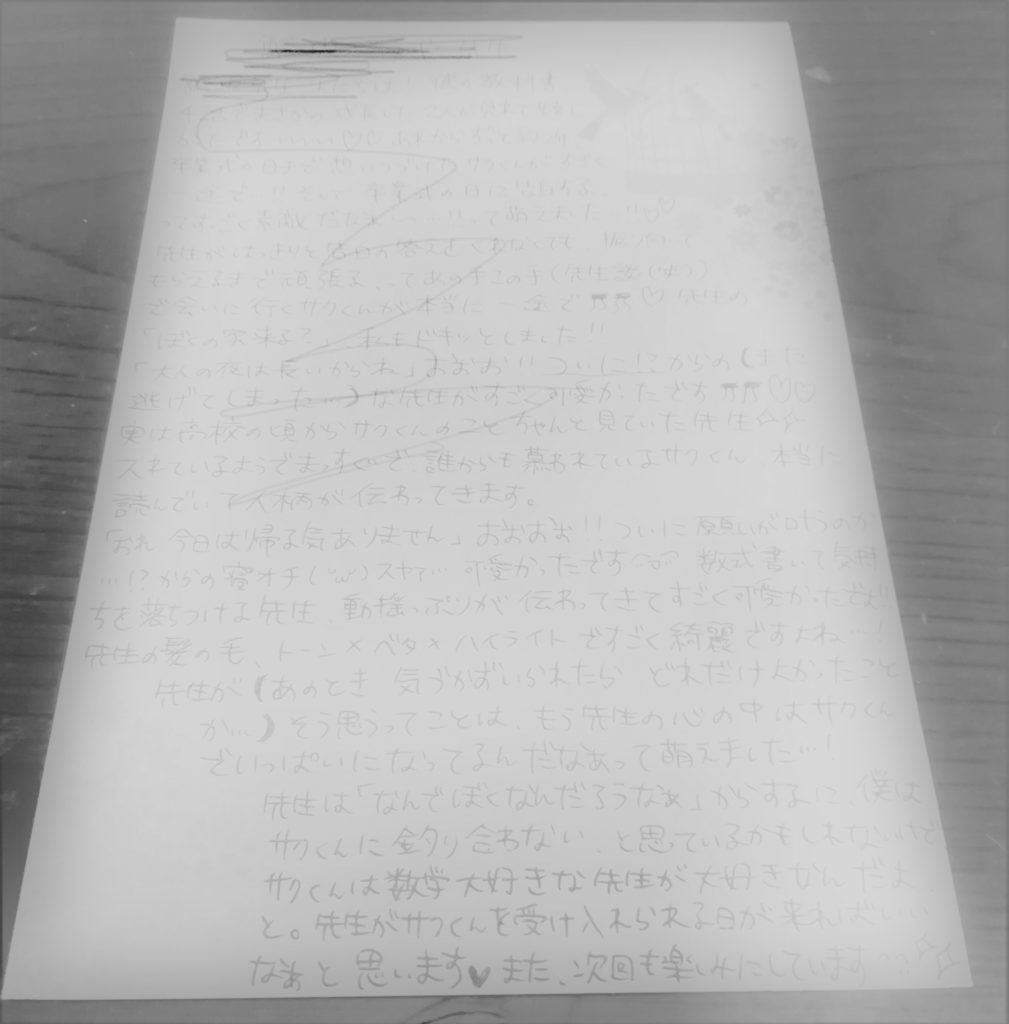 卒業式の日まで想いつづけたサクくんがすごく
一途で…!! そして、卒業式の日に告白する…
ってすごく素敵だなぁ〜…!!って萌えました…!!♡♡
先生がはっきりと告白の答えをくれなくても、振り向いて
もらえるまで頑張る、ってあの手この手(先生談(笑))
で会いに行くサクくんが本当に一途で♡ 先生の
「ぼくの家来る?」、私もドキッとしました!!
「大人の夜は長いからね」おおお!!ついに!?からの(また
逃げてしまった…)な先生がすごく可愛かったです♡♡
実は高校の頃からサクくんのことちゃんと見ていた先生☆☆
スれているようでまっすぐで、誰からも慕われているサクくん、本当に
読んでいて人柄が伝わってきます。
「おれ 今日は帰る気ありません」おおおお!!ついに願いが叶うのか
…!?からの寝オチ(´ω`)スヤァ… 可愛かったです 数式書いて気持
ちを落ちつける先生、動揺っぷりが伝わってきてすごく可愛かったです!!
先生の髪の毛、トーン×ベタ×ハイライトですごく綺麗ですよね…!
先生が(あのとき 気づかずいられたら どれだけよかったこと
か…)そう思うってことは、もう先生の心の中はサクくん
でいっぱいになってるんだなあって萌えました…!
先生は「なんでぼくなんだろうなぁ」からするに、僕は
サクくんに釣り合わない、と思っているかもしれないけど
サクくんは数学大好きな先生が大好きなんだよ
と。先生がサクくんを受け入れられる日が来ればいい
なぁと思います♥ また、次回も楽しみにしています